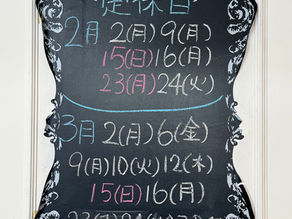 定休日
2月 2(月)9(月)
15(日)16(月)
23(月)24(火)
3月 2(月)6(金)
9(月)10(火)12(木)
15(日)16(月)